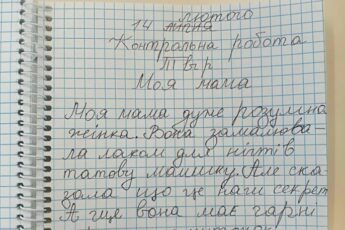 лютого
14 липня
Контрольна робота
ІІІ вар
Моя мама
Моя мама дуже розумна
жінка. Вона замалюва-
ла лаком для нігтів
татову машику. Але ска-
зала що це наги секрет
А ище вона має гарні